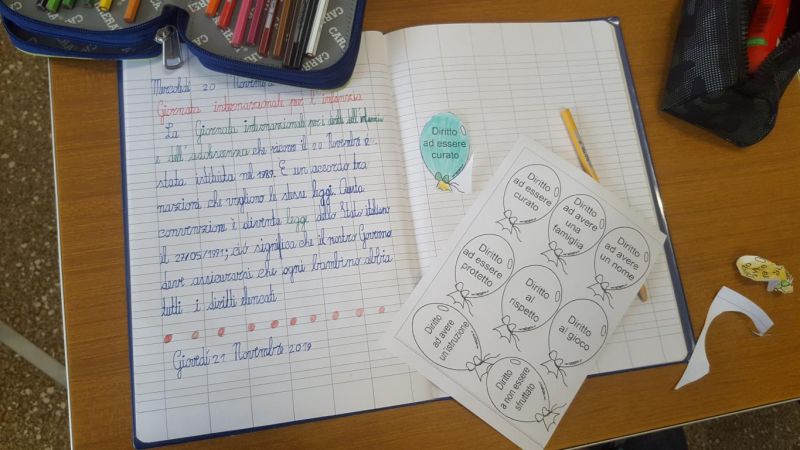 CARRERA
Mercoledì 20 Novembre
Giornata internazionale per l'infanzia
La Giornata internazionale per i diritti dell'infanzia
e dell'adolescenza che ricorre il 20 Novembre è
stata istituita nel 1989. È un accordo tra
nazioni che vogliono le stesse leggi. Questa
convenzione è diventa legge dello Stato italiano
il 27/05/1991; ciò significa che il nostro Governo
deve assicurarsi che ogni bambino abbia
tutti i diritti elencati
Giovedì 21 Novembre 2019
Diritto
ad essere
curato
Diritto
ad essere
curato
Diritto
ad avere
una
famiglia
Diritto
ad avere
un nome
Diritto
ad essere
protetto
Diritto
al
rispetto
Diritto
al gioco
Diritto
ad avere
un'istruzione
Diritto
a non essere
sfruttato